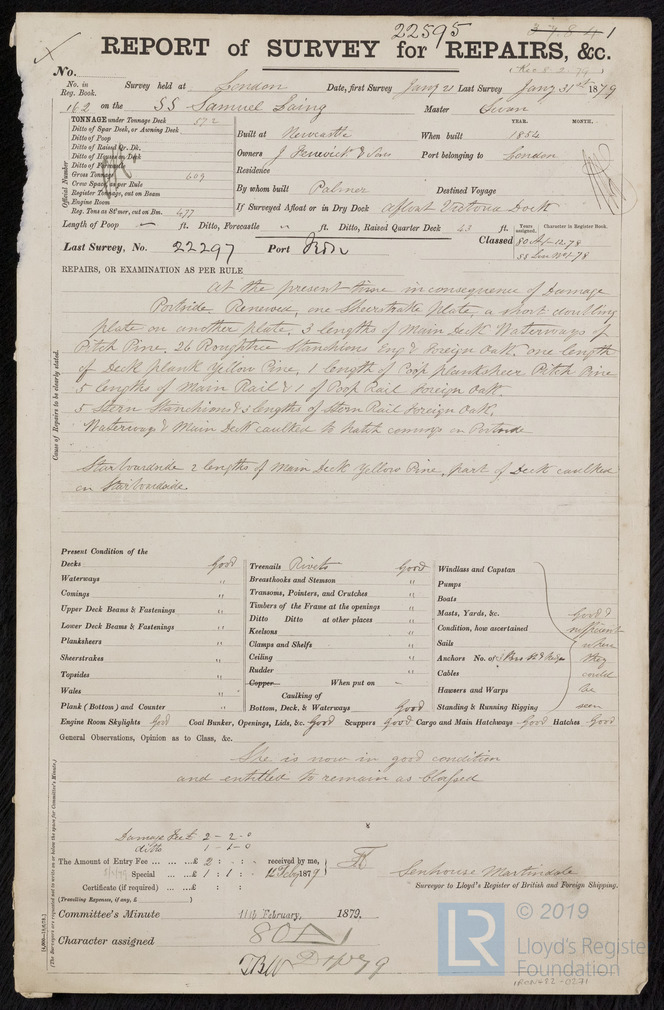 22595
37841
REPORT of SURVEY for REPAIRS, &c.
(Rec 8.2.79)
No.
No. in Reg. Book. Survey held at London Date, first Survey Jany 21 Last Survey Jany 31st 1879
162 on the SS Samuel Laing Master Swan
TONNAGE under Tonnage Deck 572
Ditto of Spar Deck, or Awning Deck
Ditto of Poop
Ditto of Raised Qr. Dk.
Ditto of House on Deck
Ditto of Forecastle
Gross Tonnage 609
Crew Space, as per Rule
Register Tonnage, cut on Beam
Engine Room
Reg. Tons as Steamer, cut on Bm. 477
Official Number
YEAR. MONTH.
Built at Newcastle When built 1854
Owners J Fenwick & Sons Port belonging to London
Residence
By whom built Palmer Destined Voyage
If Surveyed Afloat or in Dry Dock Afloat Victoria Dock
Length of Poop — ft. Ditto, Forecastle " ft. Ditto, Raised Quarter Deck 43 ft.
Years assigned. Character in Register Book.
Last Survey, No. 22297 Port Lon Classed 80 A1-12.78
REPAIRS, OR EXAMINATION AS PER RULE
At the present time in consequence of Damage
Portside Renewed, one Sheerstrake plate, a short doubling
plate on another plate, 3 lengths of Main Deck Waterways of
Pitch Pine, 26 Roughtree Stanchions Eng & Foreign Oak, one length
of Deck plank Yellow Pine, 1 length of Poop planksheer Pitch Pine
5 lengths of Main Rail & 1 of Poop Rail Foreign Oak.
5 Stern Stanchions & 3 lengths of Stern Rail Foreign Oak.
Waterways & Main Deck caulked to hatch comings on Portside
Starboardside 2 lengths of Main Deck Yellow Pine, part of Deck caulked
on Starboardside.
Cause of Repairs to be clearly stated.
Present Condition of the
Decks Good
Waterways "
Comings "
Upper Deck Beams & Fastenings "
Lower Deck Beams & Fastenings "
Planksheers "
Sheerstrakes "
Topsides "
Wales "
Plank (Bottom) and Counter "
Treenails Rivets Good
Breasthooks and Stemson "
Transoms, Pointers, and Crutches "
Timbers of the Frame at the openings "
Ditto Ditto at other places "
Keelsons "
Clamps and Shelfs "
Ceiling "
Rudder "
Copper When put on —
Caulking of
Bottom, Deck, & Waterways Good
Windlass and Capstan
Pumps
Boats
Masts, Yards, &c.
Condition, how ascertained
Sails
Anchors No. of
Cables
Hawsers and Warps
Standing & Running Rigging
Good &
sufficient
where
they
could
be
seen
Engine Room Skylights Good Coal Bunker, Openings, Lids, &c. Good Scuppers Good Cargo and Main Hatchways Good Hatches Good
General Observations, Opinion as to Class, &c.
She is now in good condition
and entitled to remain as Classed
Damage Fee £ 2-2-0
ditto 1-1-0
The Amount of Entry Fee ... £ 2 : - : - received by me,
Special ... £ 1 : 1 : - 12 Feby 1879
Certificate (if required) ... £ : :
(Travelling Expenses, if any, £ )
Senhouse Martindale
Surveyor to Lloyd's Register of British and Foreign Shipping.
Committee's Minute 11th February, 1879.
Character assigned 80 A1
LR
© 2019
Lloyd's Register
Foundation